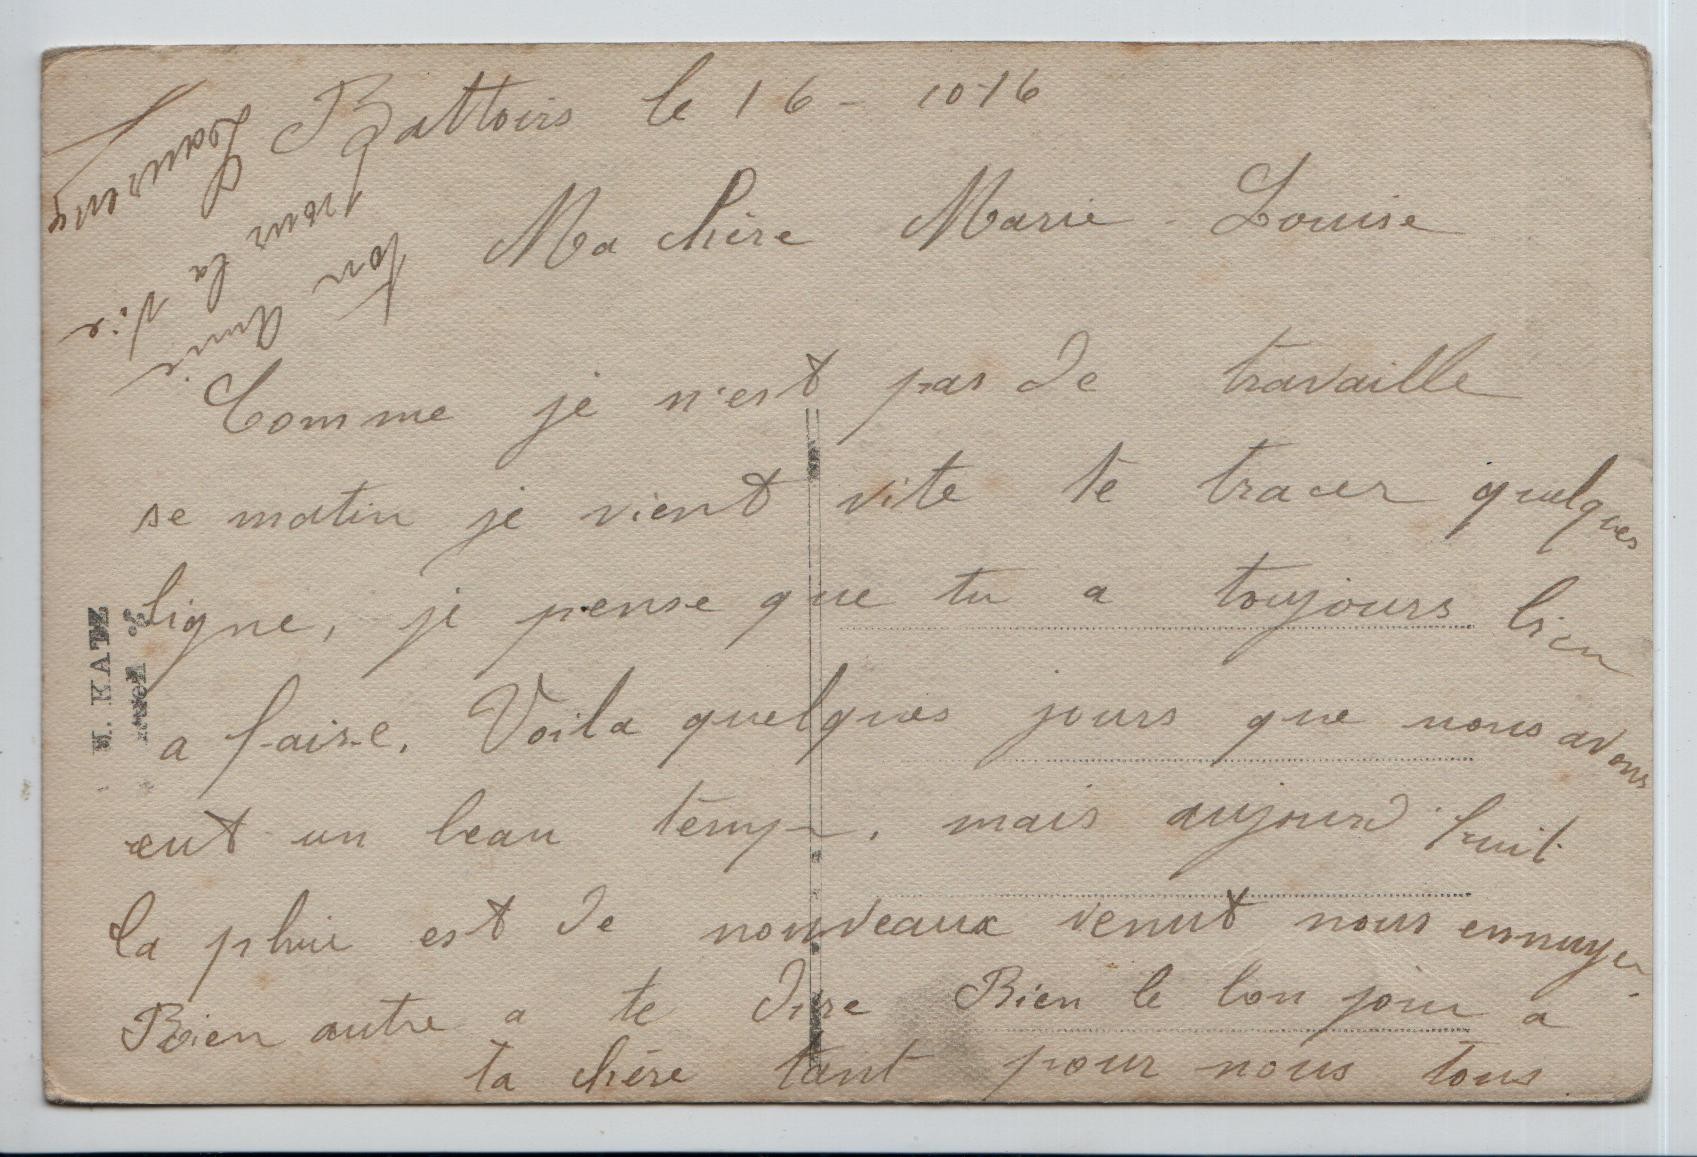 Battoirs le 16 - 10-16
Ma chère Marie-Louise
Comme je n'est pas de travaille
se matin je vient vite te tracer quelques
ligne, je pense que tu a toujours bien
a faire. Voila quelques jours que nous avons
eut un beau temp, mais aujourd'huit
la pluie est de nouveaux venut nous ennuyer
Rien autre a te dire Bien le bon jour a
ta chère tant pour nous tous
Ton Amie
pour la vie
M. KATZ